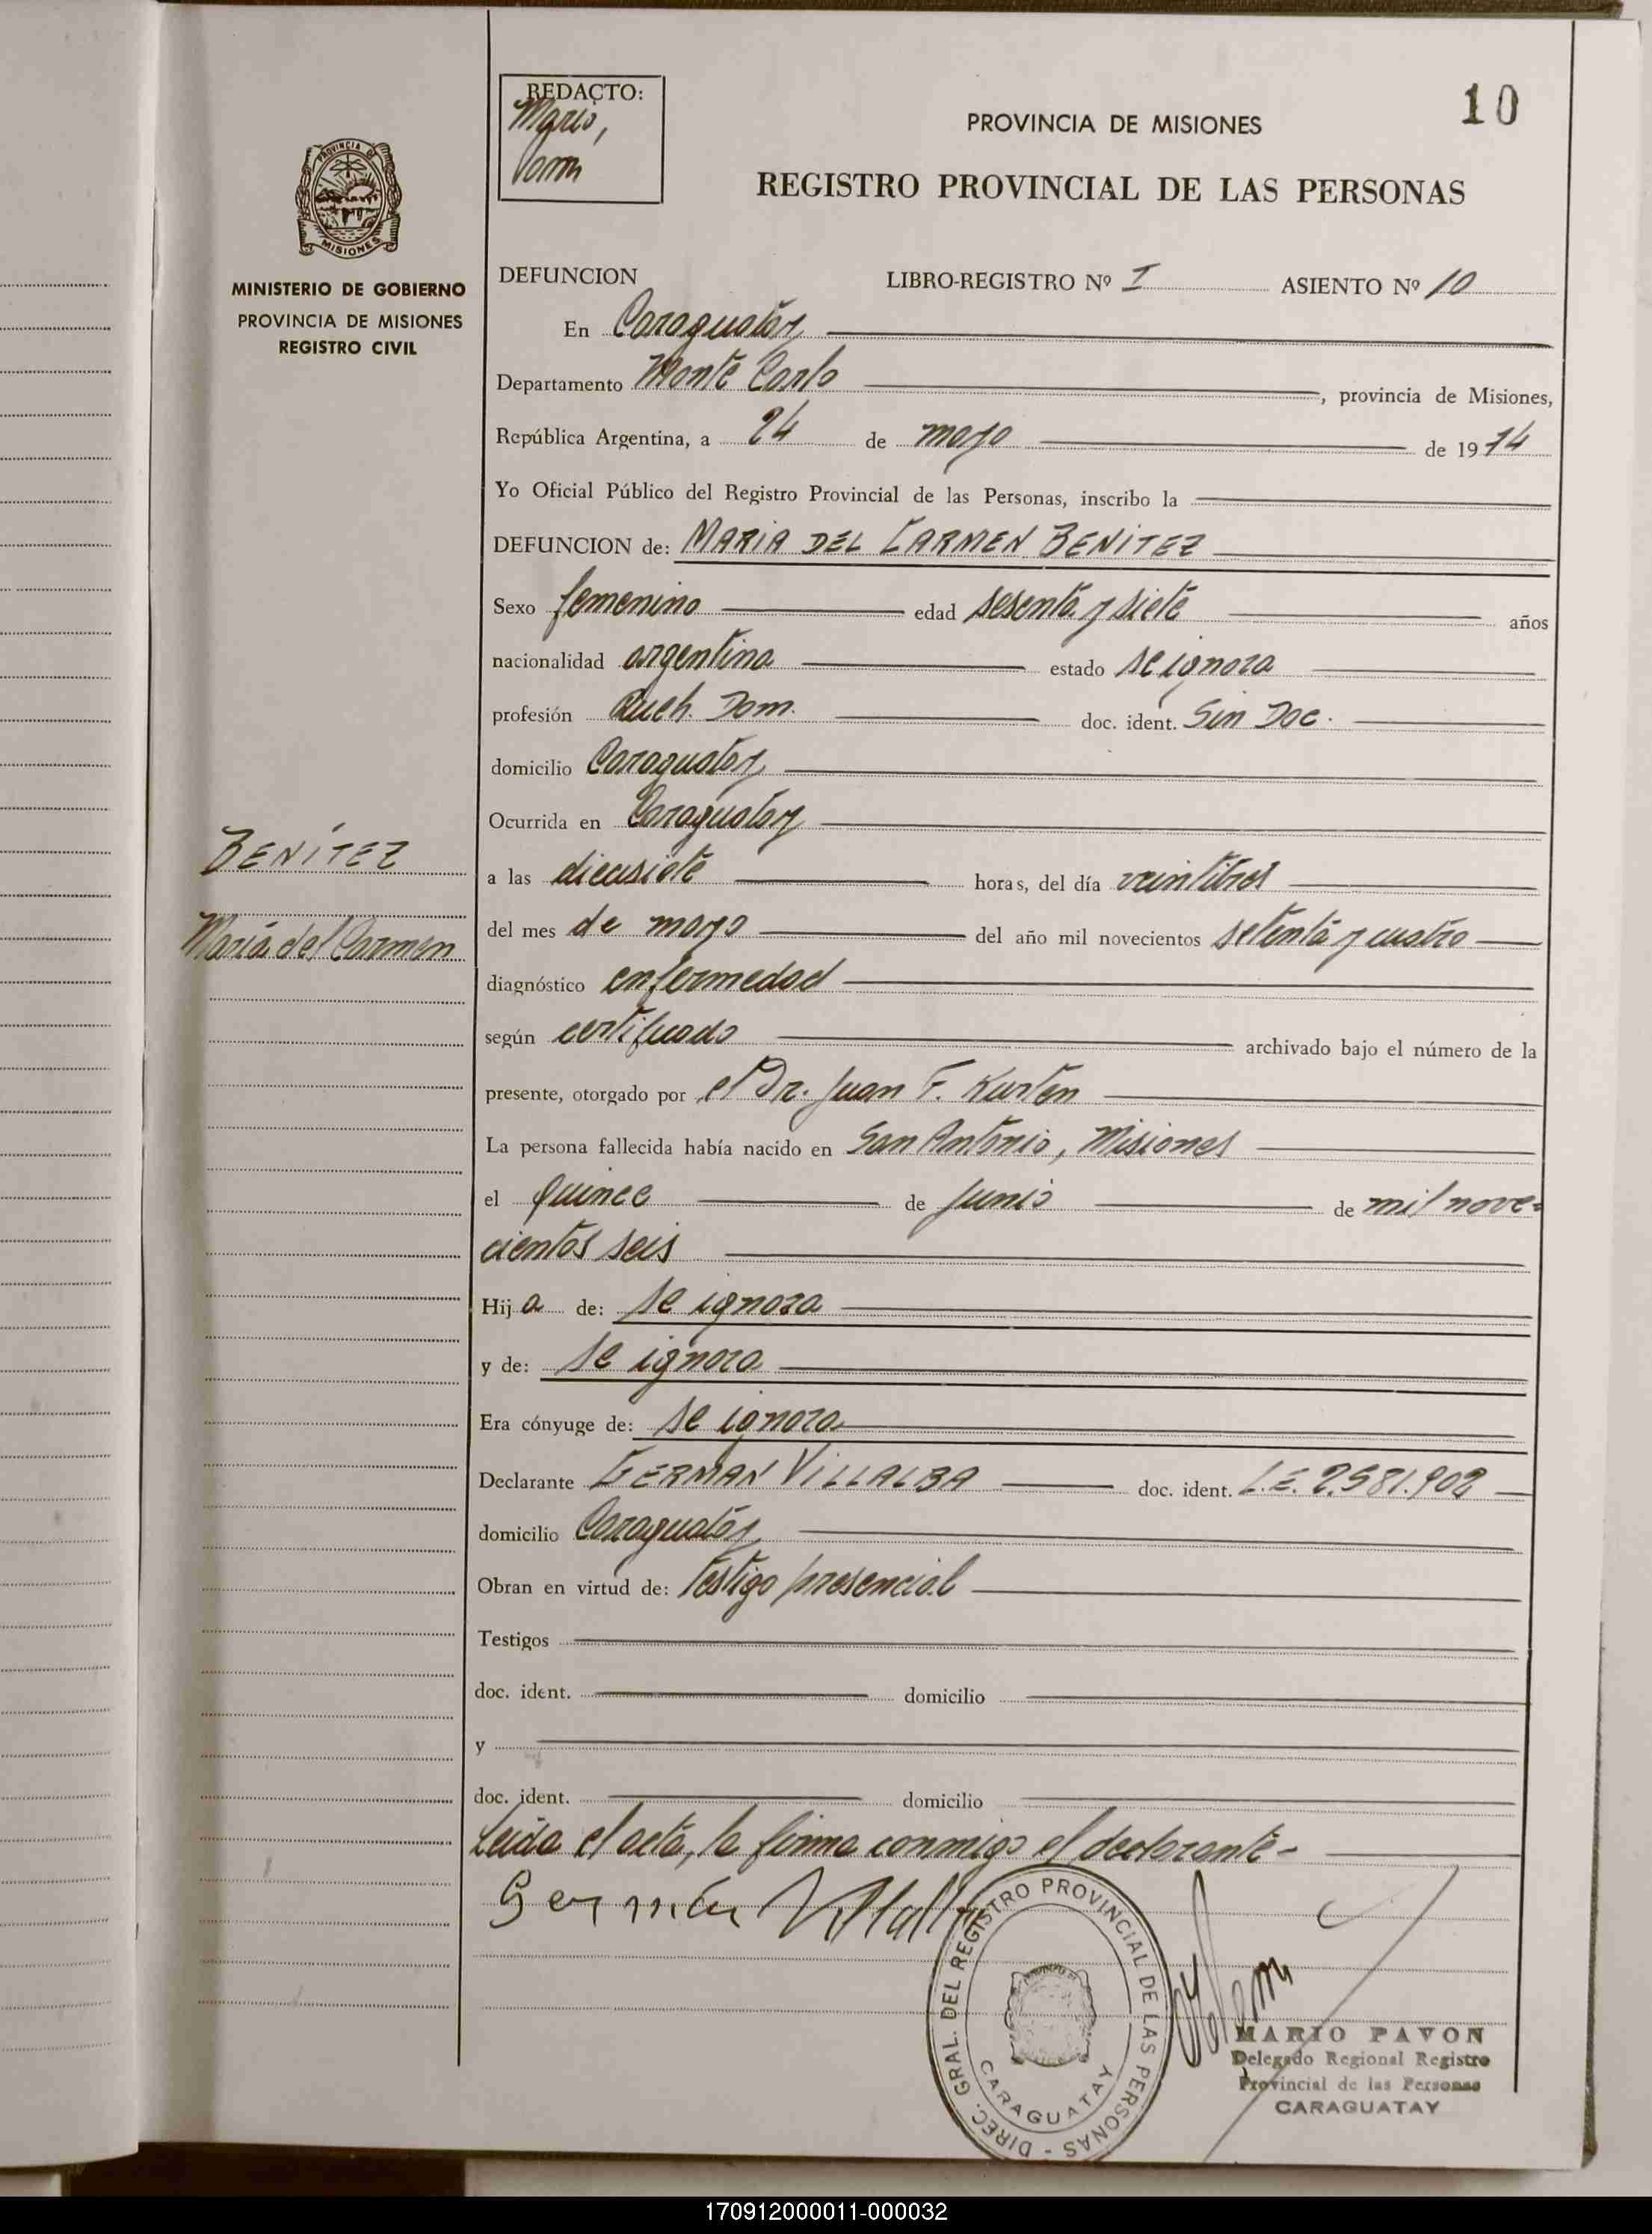 REDACTO:
Mario,
10
PROVINCIA DE MISIONES
REGISTRO PROVINCIAL DE LAS PERSONAS
PROVINCIA DE
MISIONES
MINISTERIO DE GOBIERNO
PROVINCIA DE MISIONES
REGISTRO CIVIL
DEFUNCION LIBRO-REGISTRO Nº I ASIENTO Nº 10
En Caraguatay
Departamento Monte Carlo, provincia de Misiones,
República Argentina, a 24 de mayo de 1974
Yo Oficial Público del Registro Provincial de las Personas, inscribo la
DEFUNCION de: MARIA DEL CARMEN BENITEZ
Sexo femenino edad sesenta y siete años
nacionalidad argentina estado se ignora
profesión Queh. Dom. doc. ident. Sin Doc.
domicilio Caraguatay
Ocurrida en Caraguatay
BENÍTEZ
a las diecisiete horas, del día veintitres
María del Carmen
del mes de mayo del año mil novecientos setenta y cuatro
diagnóstico enfermedad
según certificado archivado bajo el número de la
presente, otorgado por el Dr. Juan F. Kurten
La persona fallecida había nacido en San Antonio, Misiones
el quince de junio de mil nove=
cientos seis
Hij a de: se ignora
y de: se ignora
Era cónyuge de: se ignora
Declarante GERMAN VILLALBA doc. ident. L.E. 2.581.902
domicilio Caraguatay
Obran en virtud de: Testigo presencial
Testigos
doc. ident. domicilio
y
doc. ident. domicilio
Leída el acta, la firma conmigo el declarante-
German Villalba
DIREC. GRAL. DEL REGISTRO PROVINCIAL DE LAS PERSONAS -
CARAGUATAY
MARIO PAVON
Delegado Regional Registro
Provincial de las Personas
CARAGUATAY
170912000011-000032